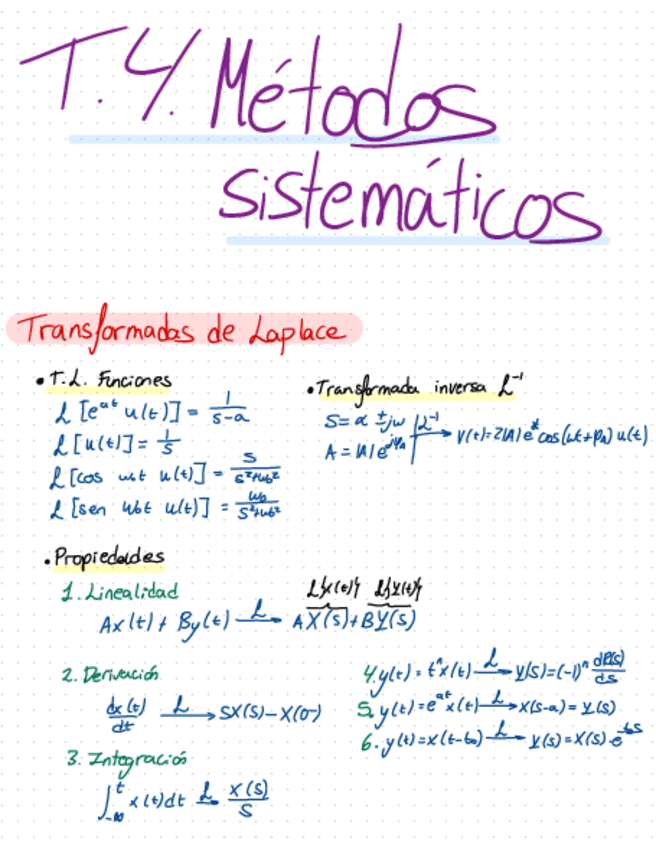 T.4. Métodos
sistemáticos
Transformadas de Laplace
• T.L. Funciones
ℒ [e^{at} u(t)] = 1/(s-a)
ℒ [u(t)] = 1/s
ℒ [cos ω₀t u(t)] = s/(s²+ω₀²)
ℒ [sen ω₀t u(t)] = ω₀/(s²+ω₀²)
• Transformada inversa ℒ⁻¹
S = α ± jω
A = |A| e^{jφ_A}
ℒ⁻¹ → v(t) = 2|A| e^{α} cos(ωt + φ_A) u(t)
• Propiedades
1. Linealidad
ℒ{x(t)} ℒ{y(t)}
Ax(t) + By(t) ℒ→ AX(s) + BY(s)
2. Derivación
dx(t)/dt ℒ→ SX(s) - X(0-)
3. Integración
∫_{-∞}^{t} x(t)dt ℒ→ X(s)/S
4. y(t) = tⁿx(t) ℒ→ Y(s) = (-1)ⁿ d(s)/ds
5. y(t) = e^{at} x(t) ℒ→ X(s-a) = Y(s)
6. y(t) = x(t-t₀) ℒ→ Y(s) = X(s) · e^{-t₀s}